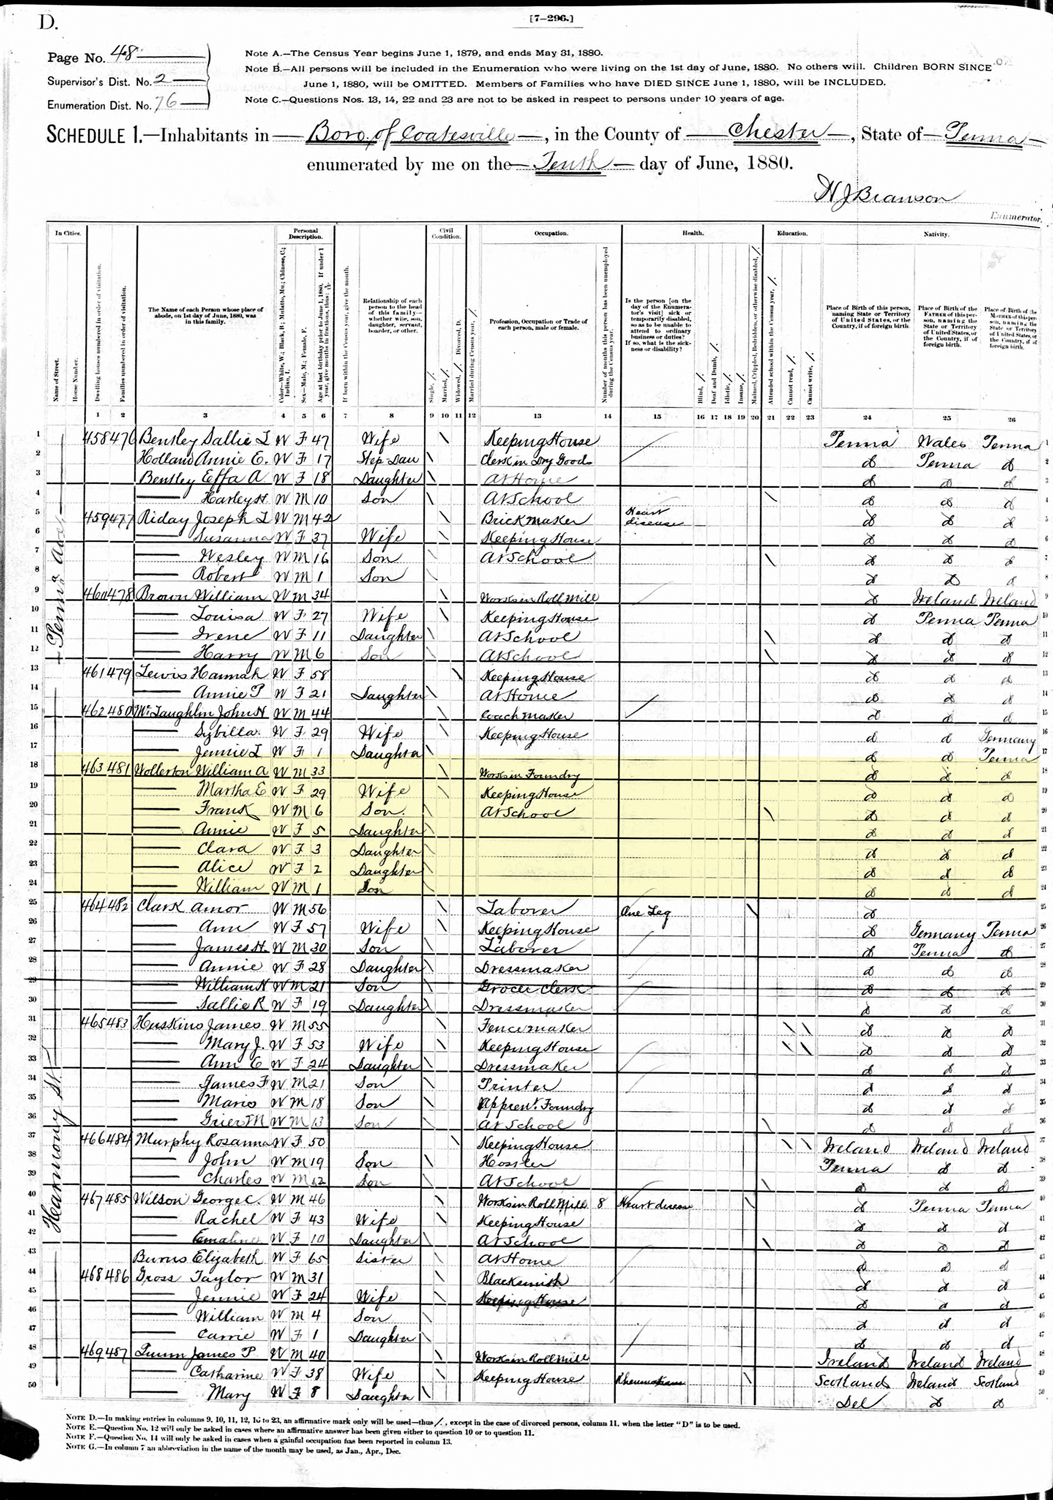 D.
[7-296.]
Page No. 48
Supervisor's Dist. No. 2
Enumeration Dist. No. 76
Note A.—The Census Year begins June 1, 1879, and ends May 31, 1880.
Note B.—All persons will be included in the Enumeration who were living on the 1st day of June, 1880. No others will. Children BORN SINCE
June 1, 1880, will be OMITTED. Members of Families who have DIED SINCE June 1, 1880, will be INCLUDED.
Note C.—Questions Nos. 13, 14, 22 and 23 are not to be asked in respect to persons under 10 years of age.
SCHEDULE 1.—Inhabitants in Boro. of Coatesville, in the County of Chester, State of Penna
enumerated by me on the Tenth day of June, 1880.
Branson
Enumerator.
In Cities. Personal Description. Civil Condition. Occupation. Health. Education. Nativity.
Name of Street. House Number. Dwelling houses numbered in order of visitation. Families numbered in order of visitation. The Name of each Person whose place of abode, on 1st day of June, 1880, was in this family. Relationship of each person to the head of this family—whether wife, son, daughter, servant, boarder, or other. Profession, Occupation or Trade of each person, male or female.
1 2 3 4 5 6 7 8 9 10 11 12 13 14 15 16 17 18 19 20 21 22 23 24 25 26
1 458 476 Bentley Sallie J W F 47 Wife / Keeping House Penna Wales Penna
2 Holland Annie E. W F 17 Step Dau / Clerk in Dry Goods d Penna d
3 Bentley Effa A W F 18 Daughter / At Home d d d
4 —— Harley H. W M 10 Son / At School / d d d
5 459 477 Riday Joseph L W M 42 / Brick maker Heart disease d d d
6 —— Susanna W F 37 Wife / Keeping House d d d
7 —— Wesley W M 16 Son / At School / d d d
8 —— Robert W M 1 Son / d d d
9 460 478 Brown William W M 34 / Works in Roll Mill d Ireland Ireland
10 —— Louisa W F 27 Wife / Keeping House d Penna Penna
11 —— Irene W F 11 Daughter / At School / d d d
12 —— Harry W M 6 Son / At School / d d d
13 461 479 Lewis Hannah W F 58 / Keeping House d d d
14 —— Annie P W F 21 Daughter / At Home d d d
15 462 480 McLaughlin John H W M 44 / Coach maker d d d
16 —— Sybilla. W F 29 Wife / Keeping House d d Germany
17 —— Jennie L W F 1 Daughter / d d Penna
18 463 481 Wollerton William A W M 33 / Works in Foundry d d d
19 —— Martha E W F 29 Wife / Keeping House d d d
20 —— Frank W M 6 Son. / At School / d d d
21 —— Annie W F 5 Daughter / d d d
22 —— Clara W F 3 Daughter / d d d
23 —— Alice W F 2 Daughter / d d d
24 —— William W M 1 Son / d d d
25 464 482 Clark Amor W M 56 / Laborer One Leg / d
26 —— Ann W F 57 Wife / Keeping House d Germany Penna
27 —— James H. W M 30 Son / Laborer d Penna d
28 —— Annie W F 28 Daughter / Dressmaker d d d
29 —— William H W M 21 Son / Grocer Clerk d d d
30 —— Sallie R W F 19 Daughter / Dressmaker d d d
31 465 483 Huskins James. W M 55 / Fence maker / / d d d
32 —— Mary J. W F 53 Wife / Keeping House / / d d d
33 —— Ann E W F 24 Daughter / Dressmaker d d d
34 —— James F W M 21 Son / Printer d d d
35 —— Maris W M 18 Son / Apprent. Foundry d d d
36 —— Grier M W M 13 Son / At School / d d d
37 466 484 Murphy Rosanna W F 50 / Keeping House / / Ireland Ireland Ireland
38 —— John W M 19 Son / Hostler Penna d d
39 —— Charles W M 12 Son / At School / d d d
40 467 485 Wilson George C. W M 46 / Works in Roll Mill 8 Heart disease / d Penna Penna
41 —— Rachel W F 43 Wife / Keeping House d d d
42 —— Emaline W F 10 Daughter / At School / d d d
43 Burns Elizabeth W F 65 Sister / At Home d d d
44 468 486 Gross Taylor W M 31 / Blacksmith d d d
45 —— Jennie W F 24 Wife / Keeping House d d d
46 —— William W M 4 Son / d d d
47 —— Carrie W F 1 Daughter / d d d
48 469 487 James P W M 40 / Works in Roll Mill Ireland Ireland Ireland
49 —— Catharine W F 38 Wife / Keeping House Rheumatism / Scotland Ireland Scotland
50 —— Mary W F 8 Daughter / Del d d
Penna Ave
Harmony St.
Note D.—In making entries in columns 9, 10, 11, 12, 16 to 23, an affirmative mark only will be used—thus /, except in the case of divorced persons, column 11, when the letter "D" is to be used.
Note E.—Question No. 12 will only be asked in cases where an affirmative answer has been given either to question 10 or to question 11.
Note F.—Question No. 14 will only be asked in cases when a gainful occupation has been reported in column 13.
Note G.—In column 7 an abbreviation in the name of the month may be used, as Jan., Apr., Dec.